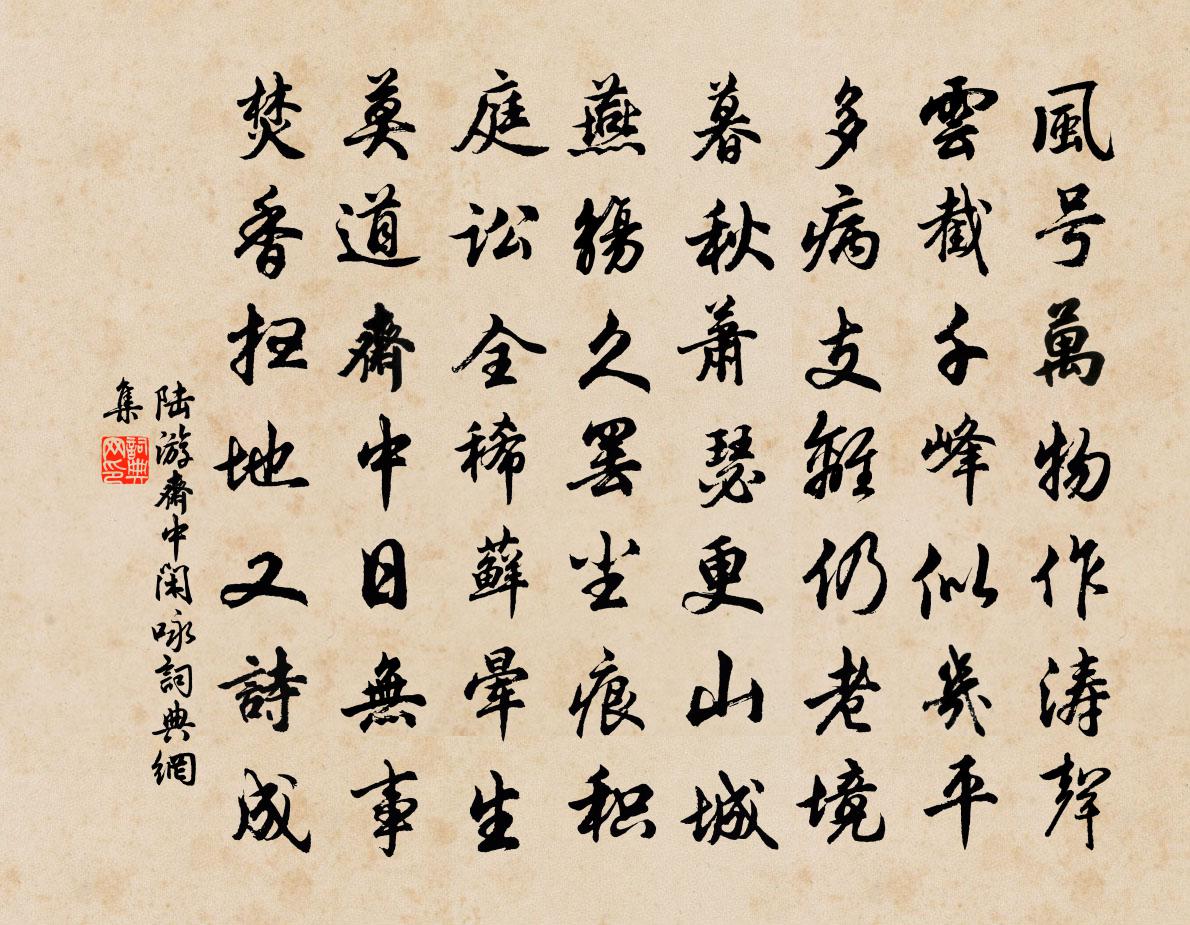 風号萬物作涛聲
雲截千峰似幾平
多病支離仍老境
暮秋蕭瑟更山城
燕觴久罢尘痕积
庭讼全稀蘚暈生
莫道齋中日無事
焚香扫地又詩成
陆游齋中閑咏詞典網
集
詞典
网印